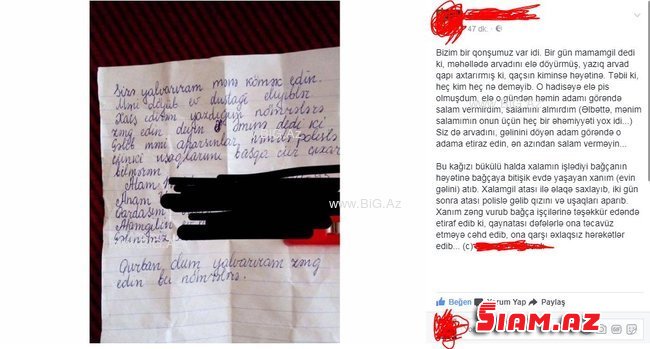 Sizə yalvarıram mənə kömək edin.
Məni döyüb ev dustağı ediblər.
Xahiş edirəm yazdığım nömrələrə
zəng edin deyin
gəlib məni aparsınlar,
uşaqlarımı başqa cür çıxar
bilmirəm
Atam
Anam
Qurban olum yalvarıram zəng
edin bu nömrələrə.
www.BiG.Az
47 dk.
Bizim bir qonşumuz var idi. Bir gün mamamgil dedi
ki, məhəllədə arvadını elə döyürmüş, yazıq arvad
qapı axtarırmış ki, qaçsın kiminsə həyətinə. Təbii ki,
heç kim heç nə deməyib. O hadisəyə elə pis
olmuşdum, elə o gündən həmin adamı görəndə
salam vermirdim, salamını almırdım (Əlbəttə, mənim
salamımın onun üçün heç bir əhəmiyyəti yox idi...)
Siz də arvadını, gəlinini döyən adam görəndə o
adama etiraz edin, ən azından salam verməyin...
Bu kağızı bükülü halda xalamın işlədiyi bağçanın
həyətinə bağçaya bitişik evdə yaşayan xanım (evin
gəlini) atıb. Xalamgil atası ilə əlaqə saxlayıb, iki gün
sonra atası polislə gəlib qızını və uşaqları aparıb.
Xanım zəng vurub bağça işçilərinə təşəkkür edəndə
etiraf edib ki, qaynatası dəfələrlə ona təcavüz
etməyə cəhd edib, ona qarşı əxlaqsız hərəkətlər
edib... (c)
Beğen Yorum Yap Paylaş
SİAM.AZ